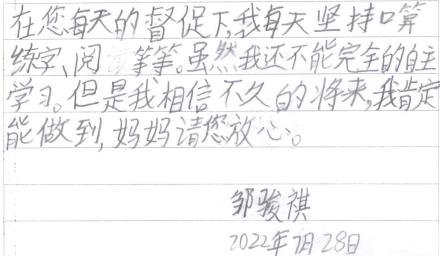 在您每天的督促下,我每天坚持口算
练字、阅 等等。虽然我还不能完全的自主
学习。但是我相信不久的将来,我肯定
能做到,妈妈请您放心。
邹骏祺
2022年7月28日